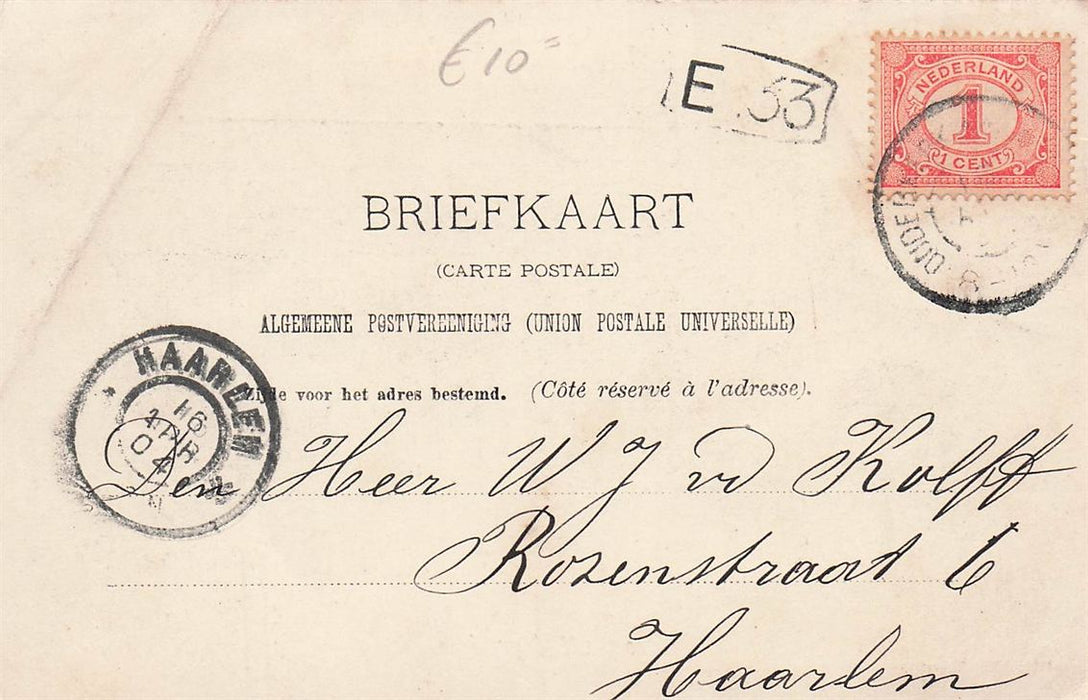 €10=
E 33
NEDERLAND
1
1 CENT
BRIEFKAART
(CARTE POSTALE)
ALGEMEENE POSTVEREENIGING (UNION POSTALE UNIVERSELLE)
Zijde voor het adres bestemd. (Côté réservé à l'adresse).
HAARLEM
APR
04
Den Heer W J vd Kolff
Rozenstraat 6
Haarlem